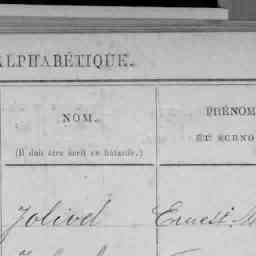 ALPHABÉTIQUE.
NOM.
PRÉNOM
ET SURNO
(Il doit être écrit en bâtarde.)
Jolivet Ernest M